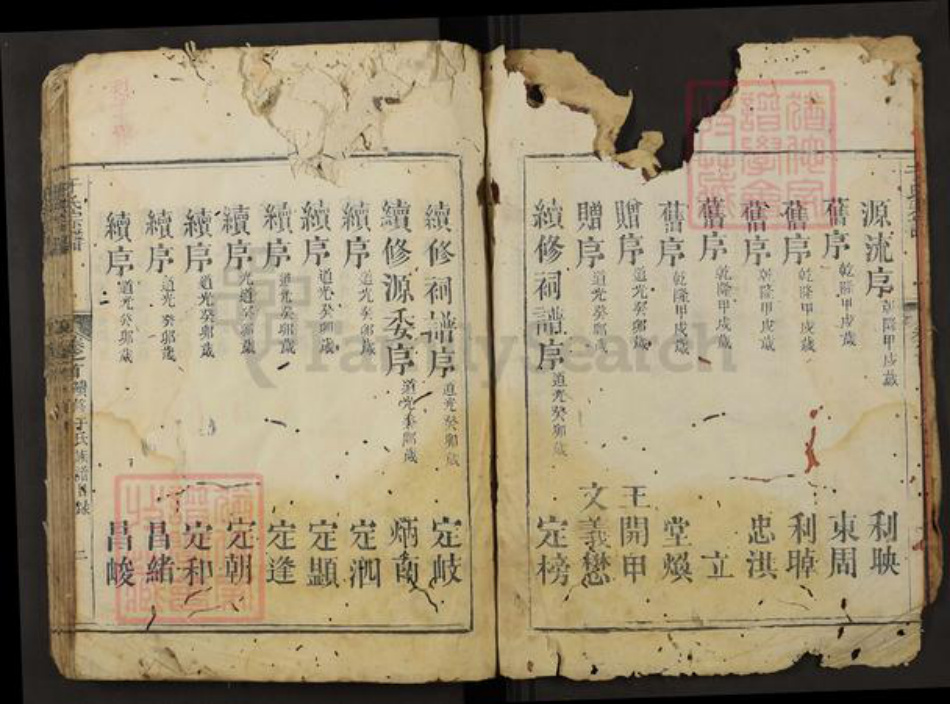 源流序 乾隆甲戌歲 利映
舊序 乾隆甲戌歲 東周
舊序 乾隆甲戌歲 利晫
舊序 乾隆甲戌歲 忠淇
舊序 乾隆甲戌歲 立
舊序 乾隆甲戌歲 堂煥
贈序 道光癸卯歲 王開甲
贈序 道光癸卯歲 文義懋
續修祠譜序 道光癸卯歲 定榜
續修祠譜序 道光癸卯歲 定岐
續修源委序 道光癸卯歲 炳南
續序 道光癸卯歲 定泗
續序 道光癸卯歲 定顯
續序 道光癸卯歲 定逢
續序 光道癸卯歲 定朝
續序 道光癸卯歲 定和
續序 道光癸卯歲 昌緒
續序 道光癸卯歲 昌峻
于氏宗譜 卷之首 續修于氏族譜目錄 二
FamilySearch